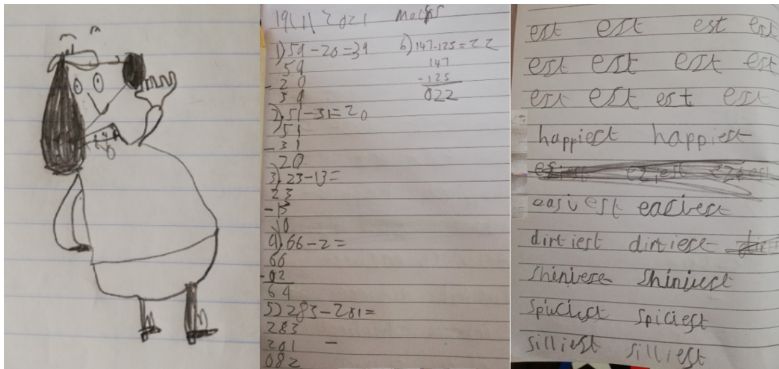 19/1/2021 Maths
1) 59-20=39
59
-20
39
2) 51-31=20
51
-31
20
3) 23-13=
23
-13
10
4) 66-2=
66
-02
64
5) 283-281=
283
201 -
082
6) 147-125=22
147
-125
022
est est est est
est est est est
est est est est
happiest happiest
easiest easiest
dirtiest dirtiest
shiniest shiniest
spiciest spiciest
silliest silliest